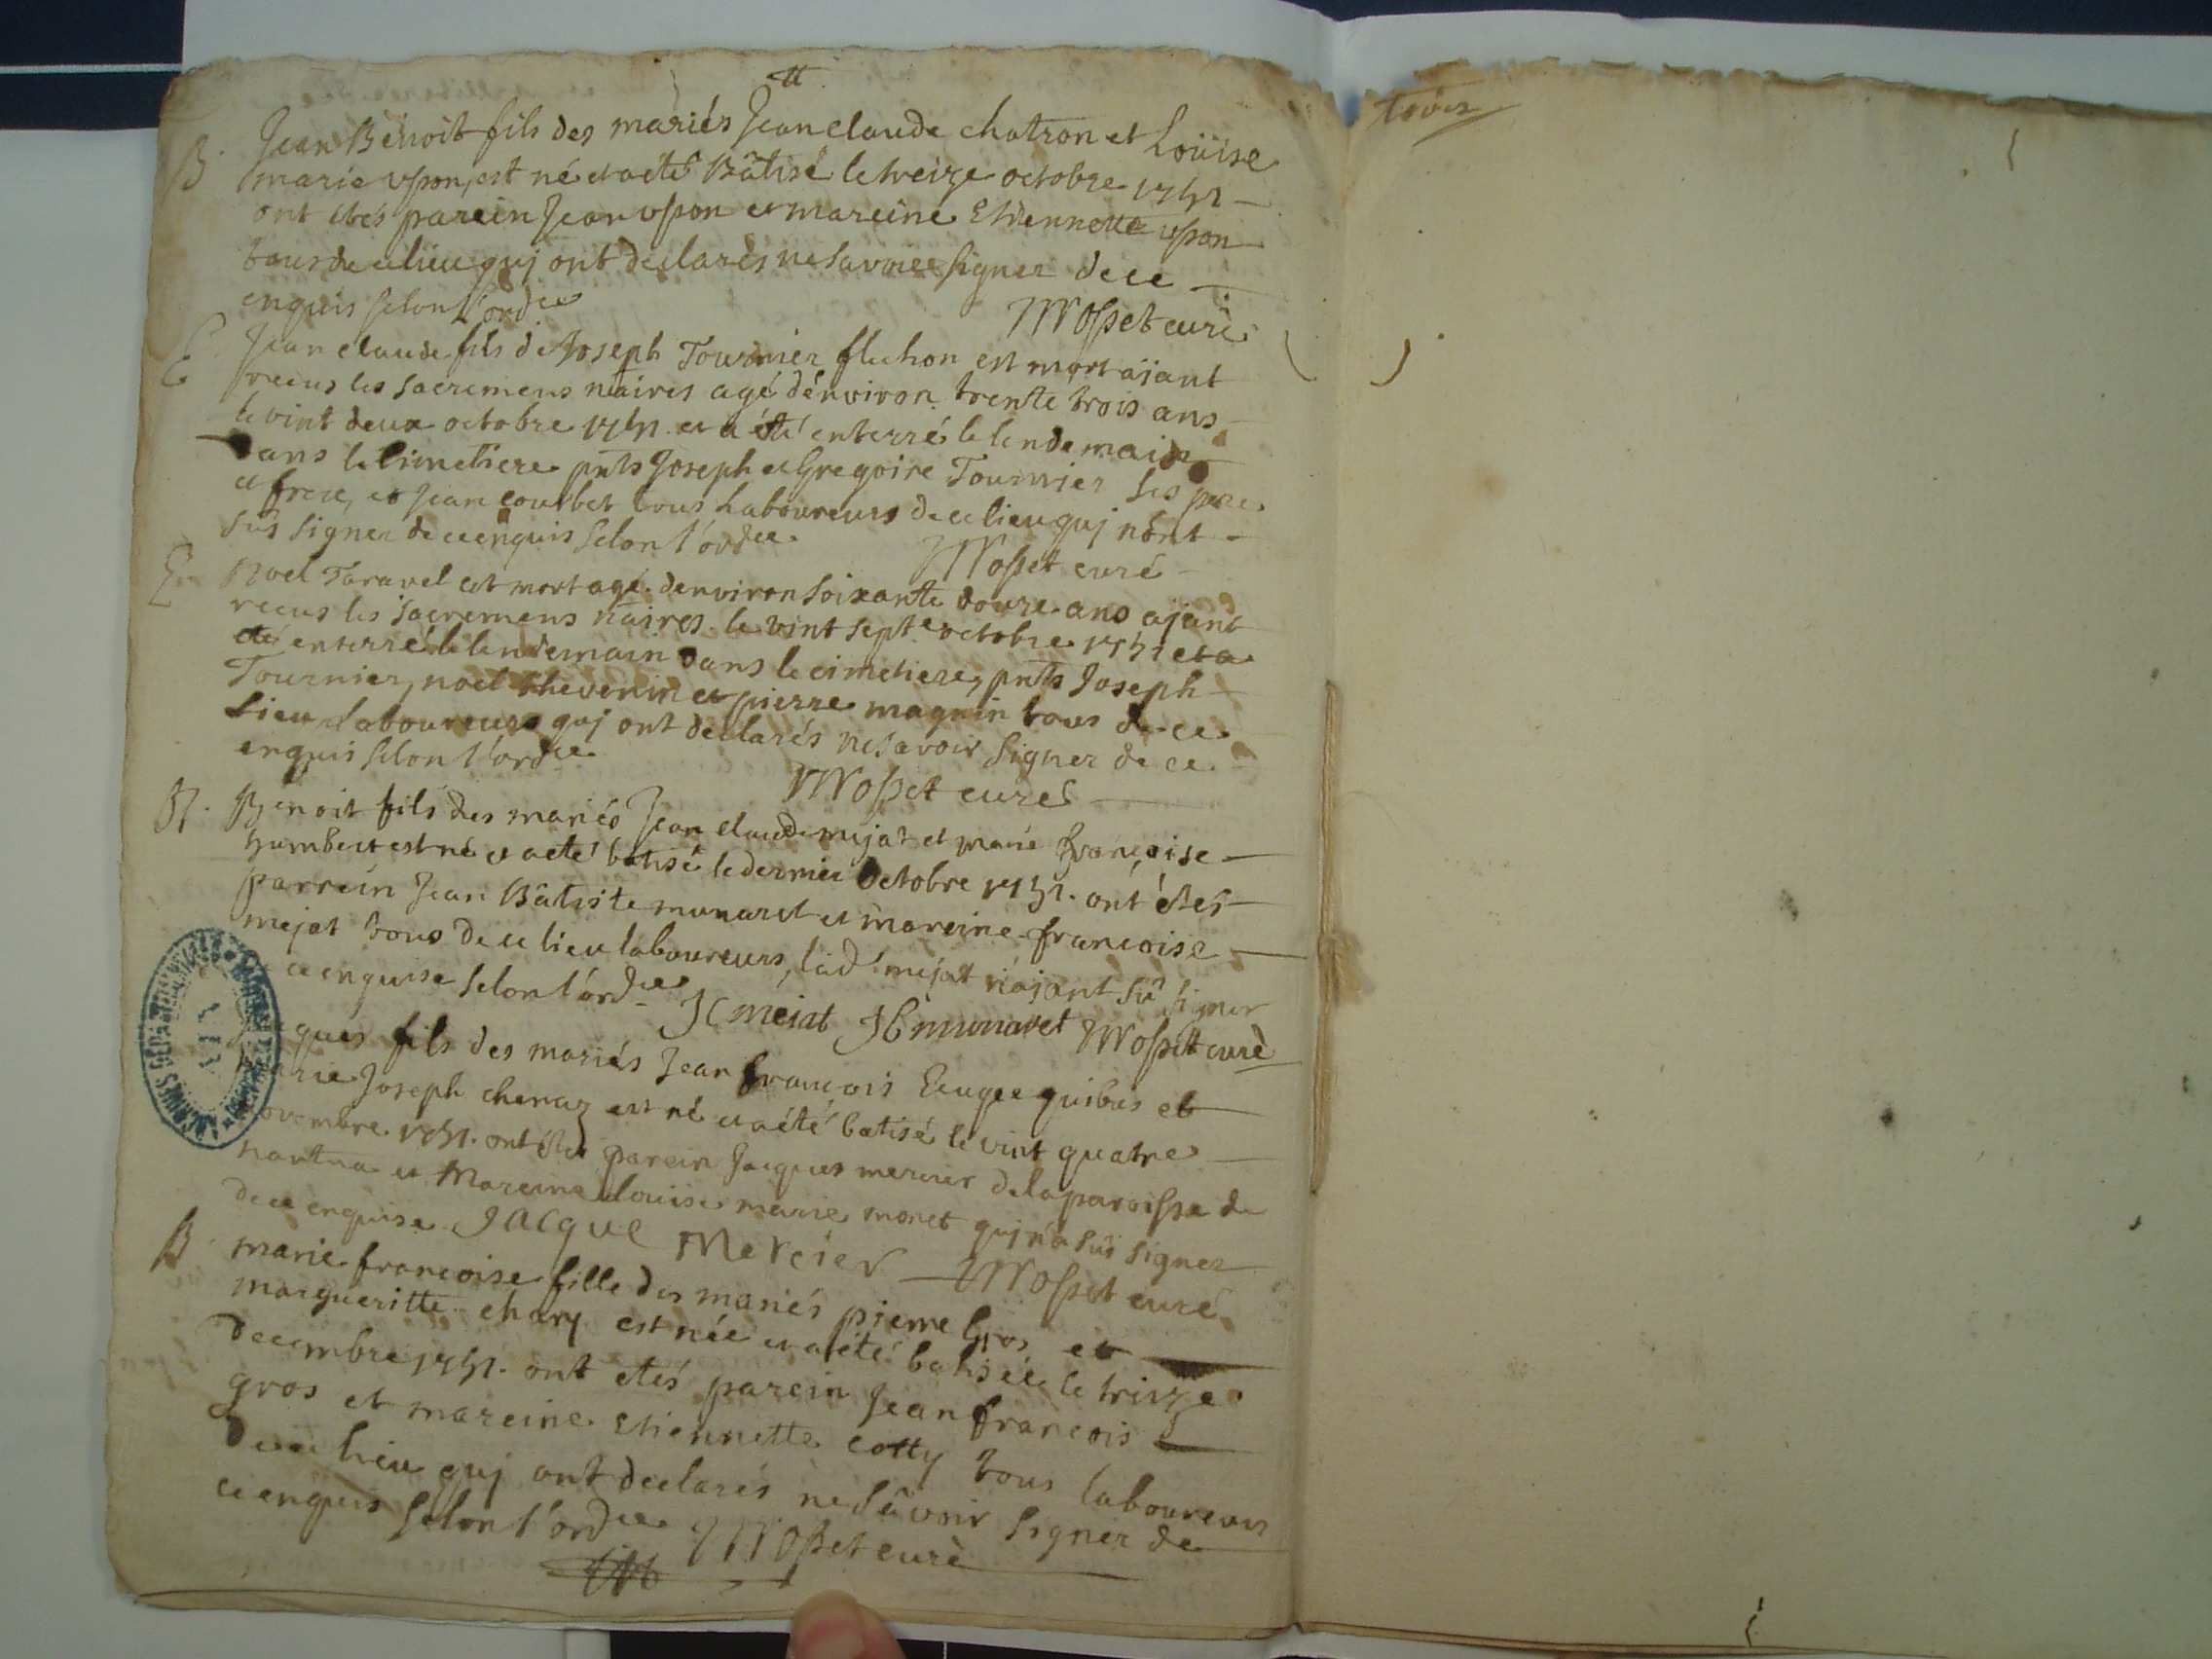 Jean Benoit fils des mariés Jean Claude chatron et Loüise
B. marie upson, est né et a eté Bâtisé le treize octobre 1751
ont étés parein Jean upson et mareine Etiennette upson
tous de ce lieu quj ont declarés ne savoir signer de ce
enquis selon l'ordce
Mosset curé
E Jean claude fils de Joseph Tournier fluchon est mort ajant
recus les sacremens n̄aires agé d'environ trente trois ans
le vint deux octobre 1751 et a été enterré le lendemain
dans le cimetiere pn̄ts Joseph et Gregoire Tournier ses pere
et frere, et Jean courbet tous Laboureurs de ce lieu quj n'ont
sus signer de ce enquis selon l'ordce
Mosset curé
E. Noel Taravel est mort agé d'environ soixante douze ans ajant
recus les sacremens n̄aires le vint sept octobre 1751 et a
eté enterré le lendemain dans le cimetiere, pn̄ts Joseph
Tournier, noel thevenin et pierre magnin tous de ce
Lieu Laboureurs quj ont declarés ne savoir signer de ce
enquis selon l'ordce
Mosset curé
B. Benoit fils des mariés Jean claude mejat et marie françoise
humbert est né et a eté batisé le dernier octobre 1751. ont étés
parrein Jean Bâtiste munaret et mareine francoise
mejat tous de ce lieu laboureurs, lad. mejat n'ajant sû signer
ce enquise selon l'ordce JC mejat JB munaret Mosset curé
ques fils des mariés Jean françois quibus et
Joseph chenaz est né et a été batisé le vint quatre
novembre 1751. ont étés parein Jacques mercier de la paroisse de
nantua et Mareine Louise marie monet quj n'a sus signer
de ce enquise JACque Mercier Mosset curé
B. marie francoise fille des mariés pierre Gros et
margueritte chary est née et a été batisée le treize
decembre 1751. ont etés parein Jean francois
gros et mareine Etiennette cotty tous laboureurs
de ce lieu quj ont declarés ne sâvoir signer de
ce enquis selon l'ordce Mosset curé
trois